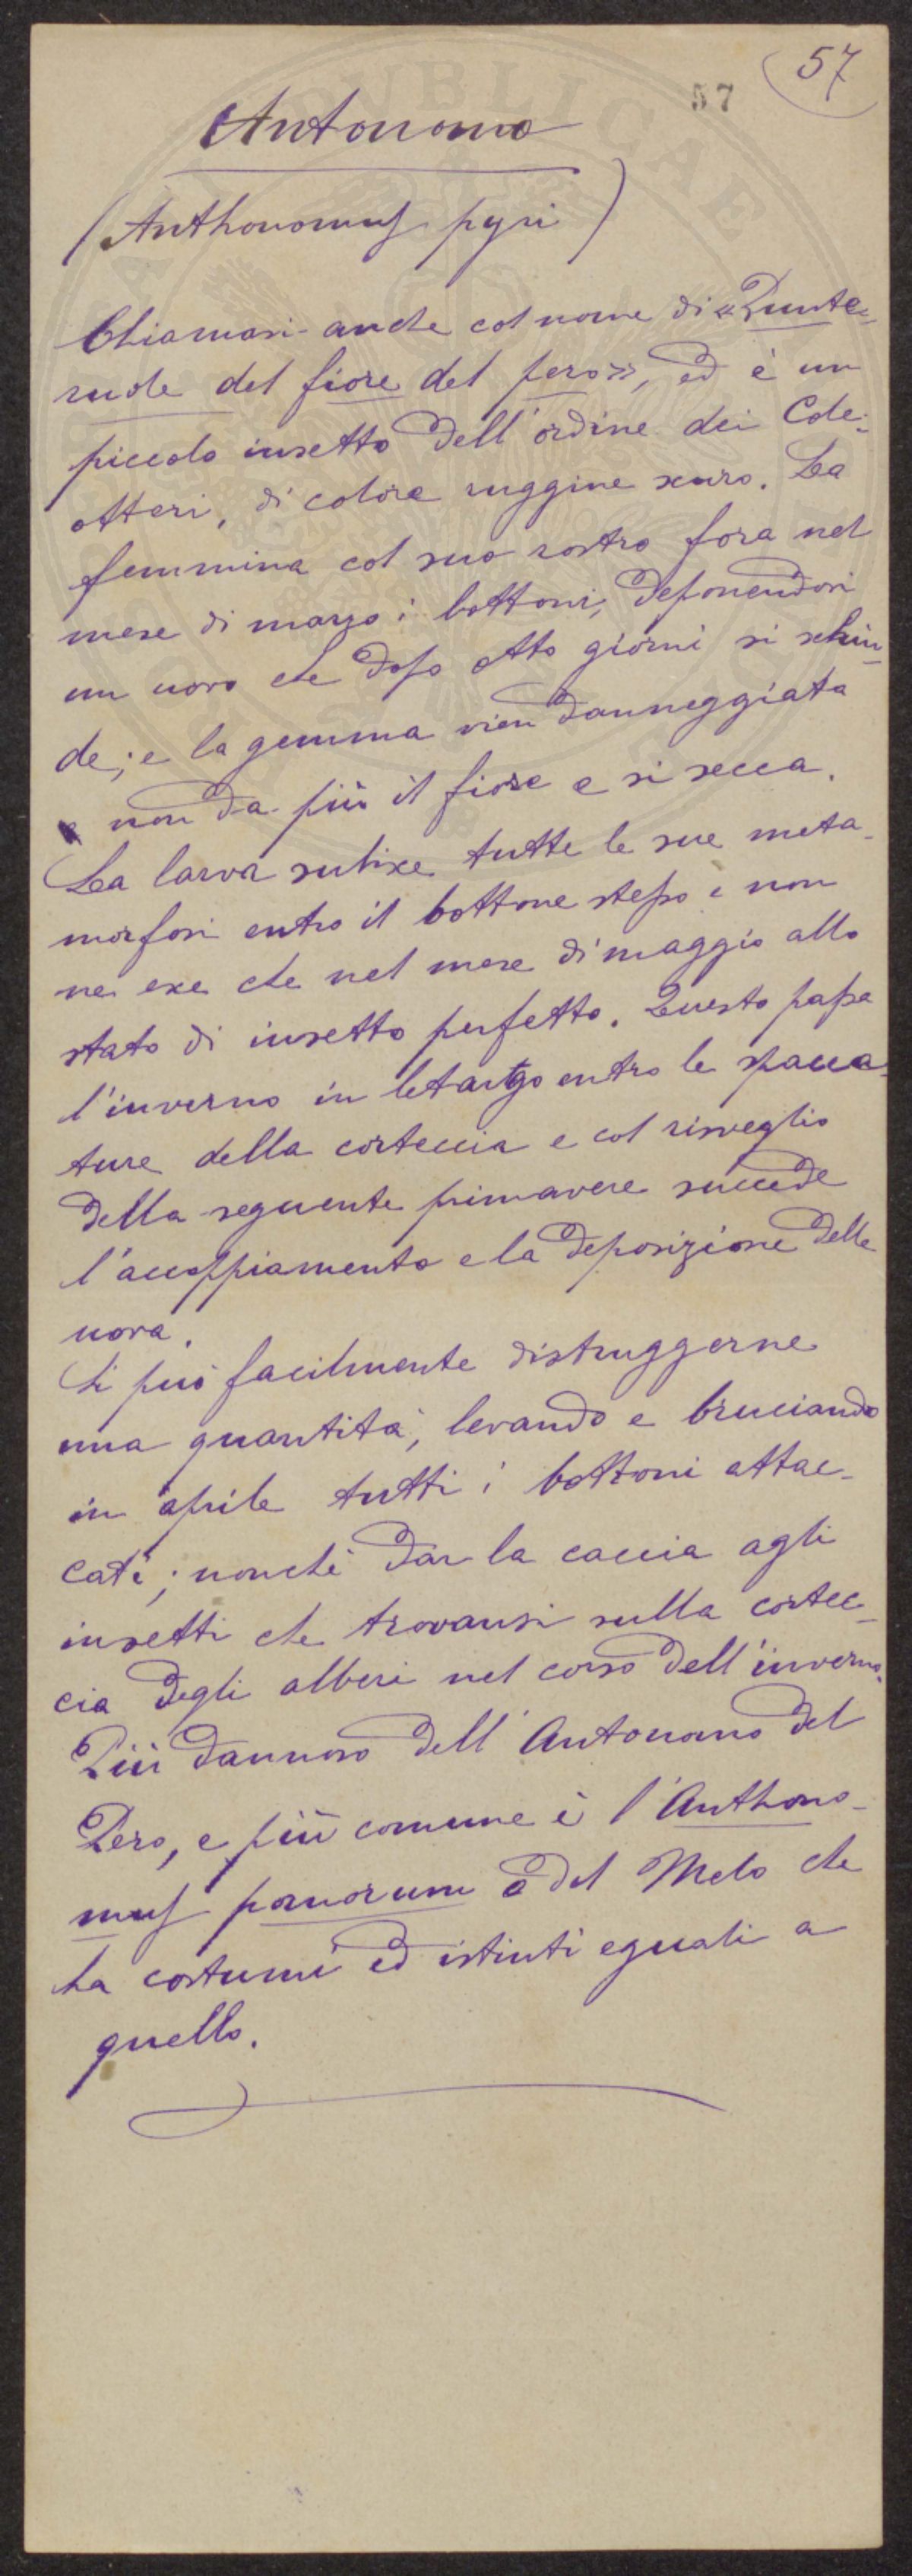 57
57
Antonomo
(Anthonomus pyri)
Chiamasi anche col nome di «Punte=
ruole del fiore del pero», ed è un
piccolo insetto dell'ordine dei Cole=
otteri, di colore ruggine scuro. La
femmina col suo rostro fora nel
mese di marzo i bottoni, deponendovi
un uovo che dopo otto giorni si schiu_
de; e la gemma vien danneggiata
e non da più il fiore e si secca.
La larva subisce tutte le sue meta_
morfosi entro il bottone stesso e non
ne esce che nel mese di maggio allo
stato di insetto perfetto. Questo passa
l'inverno in letargo entro le spacca_
ture della corteccia e col risveglio
della seguente primavera succede
l'accoppiamento e la deposizione delle
uova.
Si può facilmente distruggerne
una quantità, levando e bruciando
in aprile tutti i bottoni attac_
cati; nonchè dar la caccia agli
insetti che trovansi sulla cortec_
cia degli alberi nel corso dell'inverno.
Più dannoso dell'Antonomo del
Pero, e più comune è l'Anthono_
mus pomorum o del Melo che
ha costumi ed istinti eguali a
quello.